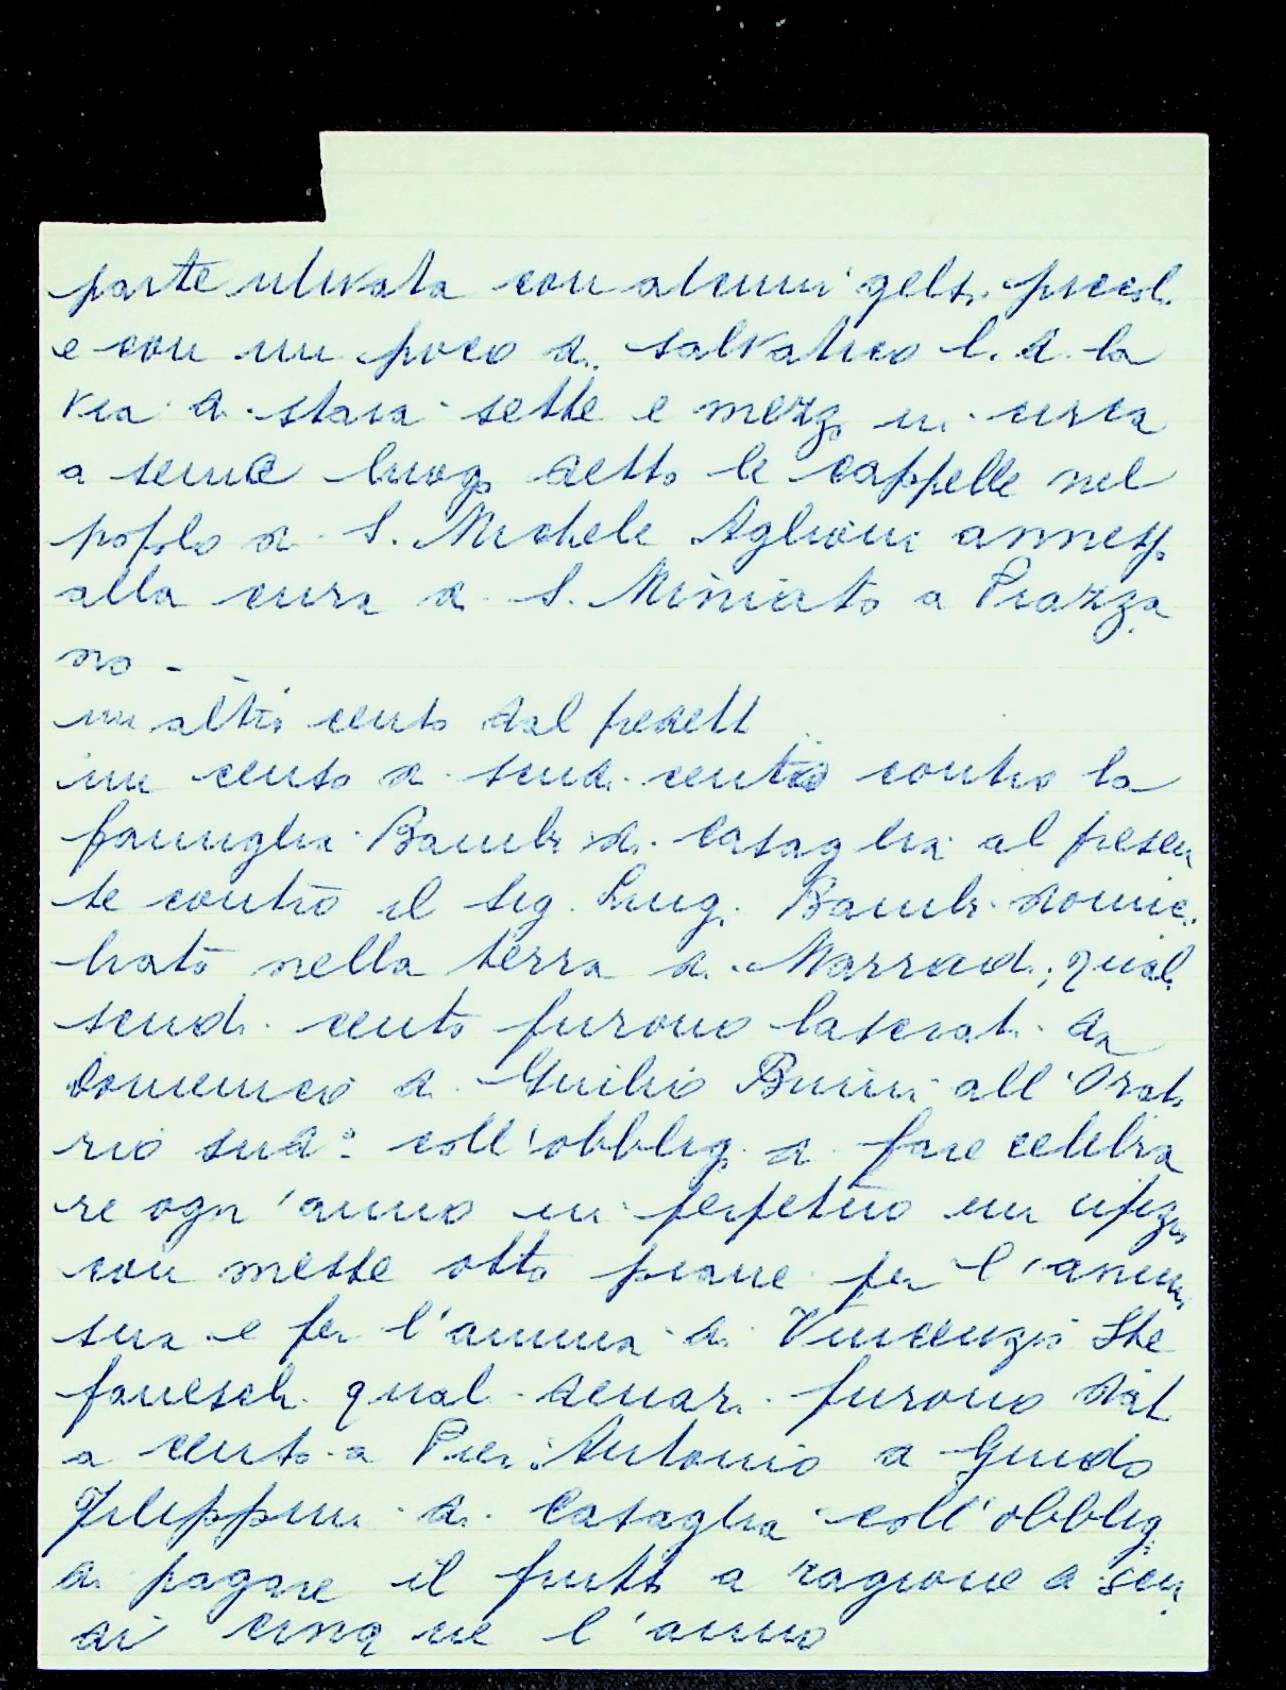 parte ulivata con alcuni gelsi piccoli
e con un poco di salvatico l. d. la
via di staia sette e mezzo in circa
a seme luogo detto le cappelle nel
popolo di S. Michele Aglioni annesso
alla cura di S. Miniato a Piazza
no -
un altro censo dal predett
un censo di scudi cento contro la
famiglia Bambi di Casaglia al presen
te contro il Sig. Luigi Bambi domici
liato nella terra di Marradi, quali
scudi cento furono lasciati da
Domenico di Giulio Buini all'Orato
rio sud° coll'obbligo di fare celebra
re ogn'anno in perpetuo un ufizio
con messe otto piane per l'anima
sua e per l'anima di Vincenzio Ste
faneschi quali denari furono dati
a censo a Pier Antonio di Guido
Filippini di Casaglia coll'obbligo
di pagare il frutto a ragione di scu
di cinque l'anno